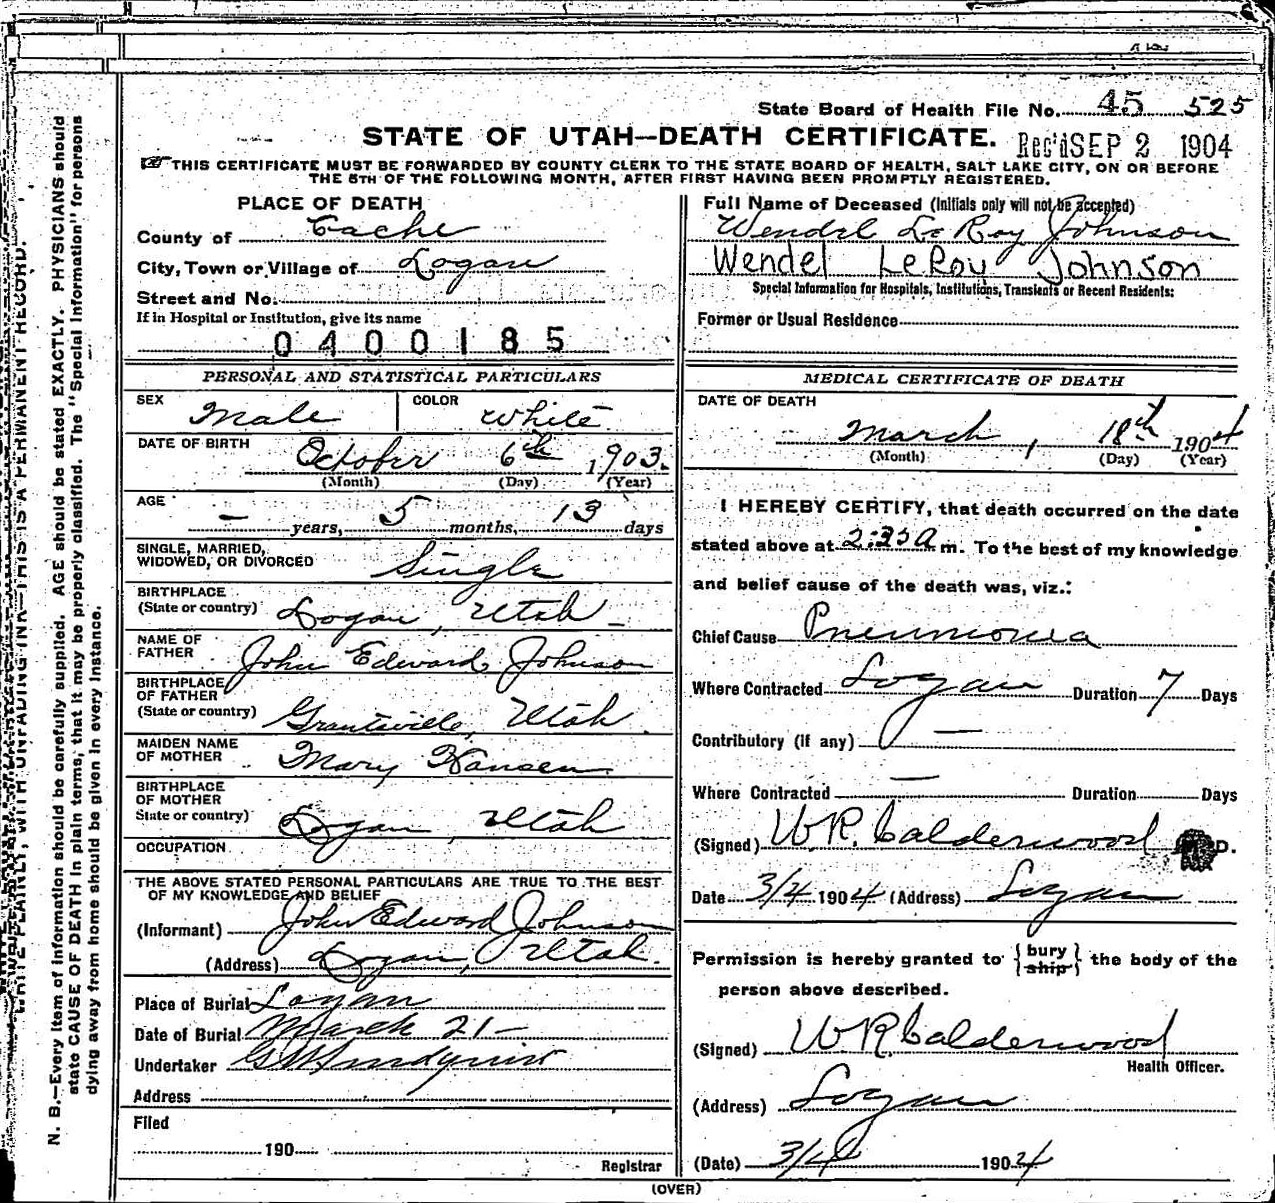 State Board of Health File No. 45 525
STATE OF UTAH—DEATH CERTIFICATE. Rec'd SEP 2 1904
THIS CERTIFICATE MUST BE FORWARDED BY COUNTY CLERK TO THE STATE BOARD OF HEALTH, SALT LAKE CITY, ON OR BEFORE
THE 5TH OF THE FOLLOWING MONTH, AFTER FIRST HAVING BEEN PROMPTLY REGISTERED.
PLACE OF DEATH
County of Cache
City, Town or Village of Logan
Street and No.
If in Hospital or Institution, give its name
0400185
Full Name of Deceased (Initials only will not be accepted)
Wendel LeRoy Johnson
Wendel LeRoy Johnson
Special Information for Hospitals, Institutions, Transients or Recent Residents:
Former or Usual Residence
PERSONAL AND STATISTICAL PARTICULARS
SEX Male COLOR White
DATE OF BIRTH October 6th 1903.
(Month) (Day) (Year)
AGE — years, 5 months, 13 days
SINGLE, MARRIED,
WIDOWED, OR DIVORCED Single
BIRTHPLACE
(State or country) Logan, Utah
NAME OF
FATHER John Edward Johnson
BIRTHPLACE
OF FATHER
(State or country) Grantsville, Utah
MAIDEN NAME
OF MOTHER Mary Hansen
BIRTHPLACE
OF MOTHER
State or country) Logan, Utah
OCCUPATION
THE ABOVE STATED PERSONAL PARTICULARS ARE TRUE TO THE BEST
OF MY KNOWLEDGE AND BELIEF
(Informant) John Edward Johnson
(Address) Logan, Utah.
Place of Burial Logan
Date of Burial March 21—
Undertaker
Address
Filed
190
Registrar
MEDICAL CERTIFICATE OF DEATH
DATE OF DEATH
March, 18th 1904
(Month) (Day) (Year)
I HEREBY CERTIFY, that death occurred on the date
stated above at 2:35 A m. To the best of my knowledge
and belief cause of the death was, viz.:
Chief Cause Pneumonia
Where Contracted Logan Duration 7 Days
Contributory (if any) —
Where Contracted — Duration Days
(Signed) W.R. Calderwood D.
Date 3/4 1904 (Address) Logan
Permission is hereby granted to {bury ship} the body of the
person above described.
(Signed) W R Calderwood
Health Officer.
(Address) Logan
(Date) 3/4 1904
(OVER)
WRITE PLAINLY, WITH UNFADING INK—THIS IS A PERMANENT RECORD.
N. B.—Every item of information should be carefully supplied. AGE should be stated EXACTLY. PHYSICIANS should
state CAUSE OF DEATH in plain terms, that it may be properly classified. The "Special Information" for persons
dying away from home should be given in every instance.